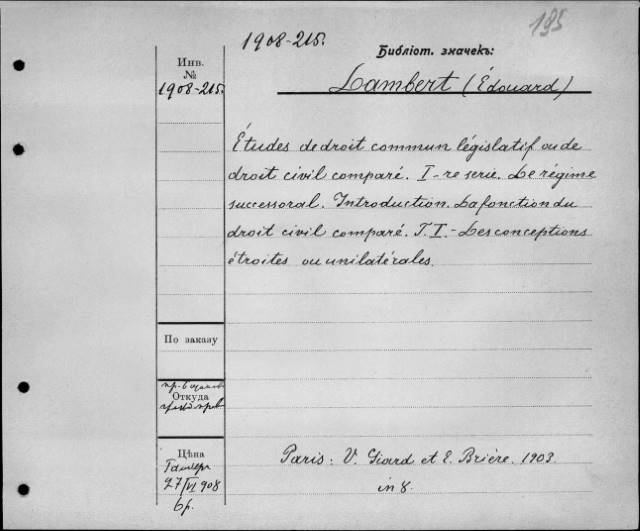 195
1908-215.
Инв.
№
1908-215.
Библіот. значекъ:
Lambert (Édouard)
Études de droit commun législatif ou de
droit civil comparé. I-re serie. Le régime
successoral. Introduction. La fonction du
droit civil comparé. T. I. - Les conceptions
étroites ou unilatérales.
По заказу
Откуда
Цѣна
27/VI 908
6р.
Paris: V. Giard et E. Brière. 1903.
in 8.